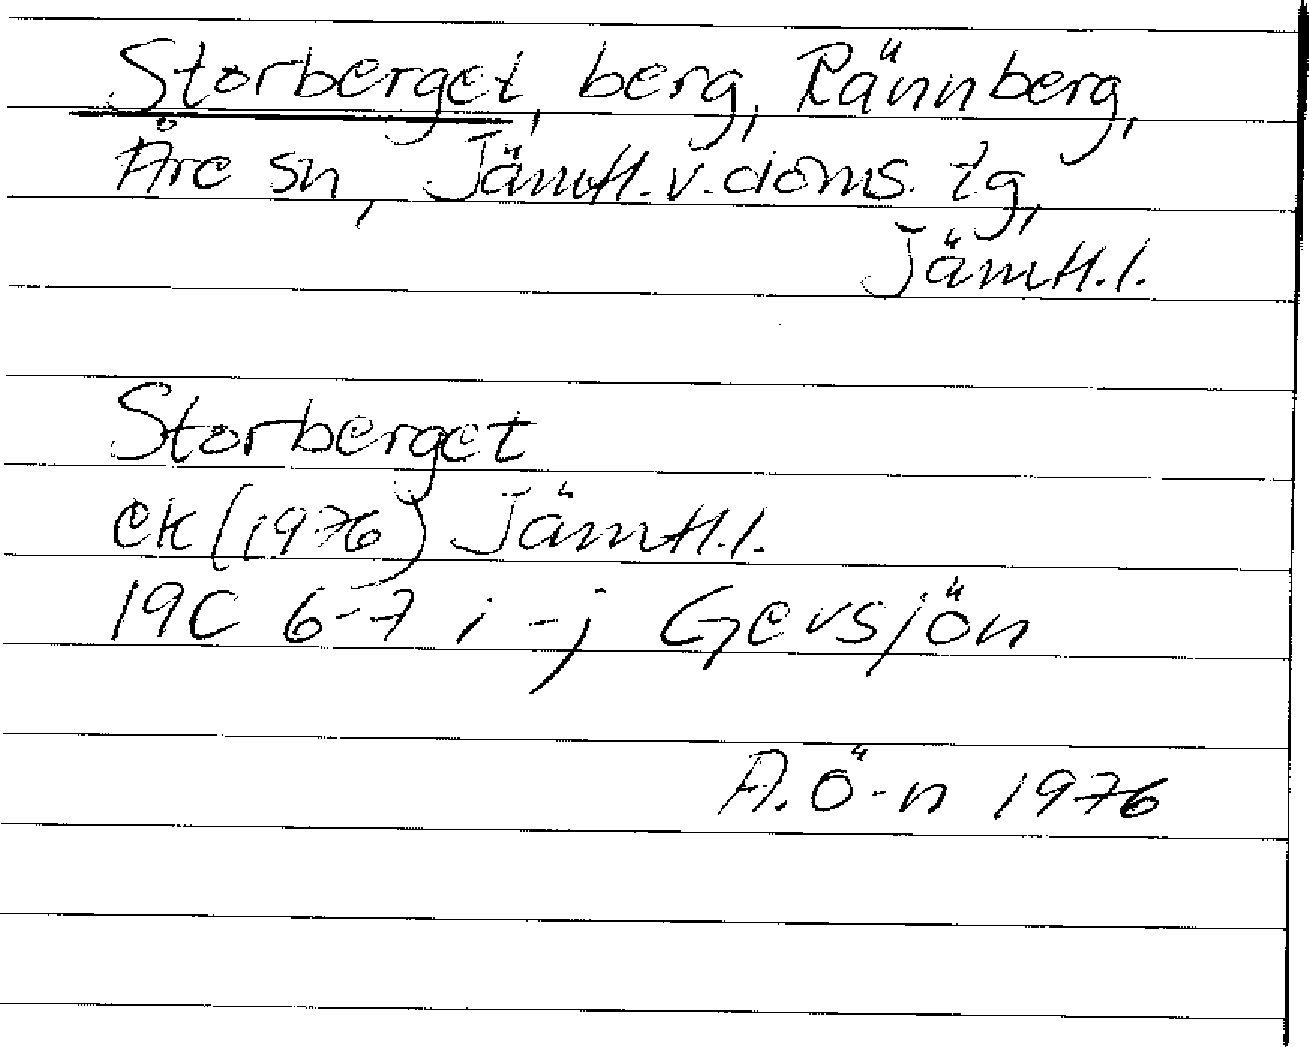 Storberget, berg, Rännberg,
Åre sn, Jämtl. v. doms. tg,
Jämtl. l.
Storberget
ek (1976) Jämtl. l.
19C 6-7 i-j Gevsjön
A. Ö-n 1976